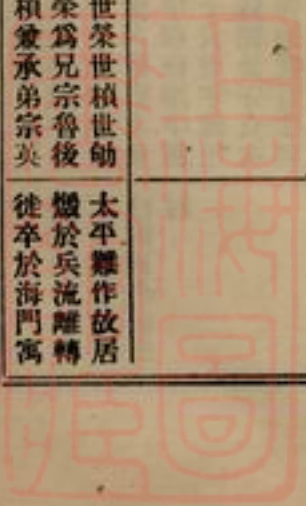 世榮世楨世勄
榮爲兄宗魯後
楨兼承弟宗英
太平難作故居
燬於兵流離轉
徙卒於海門寓